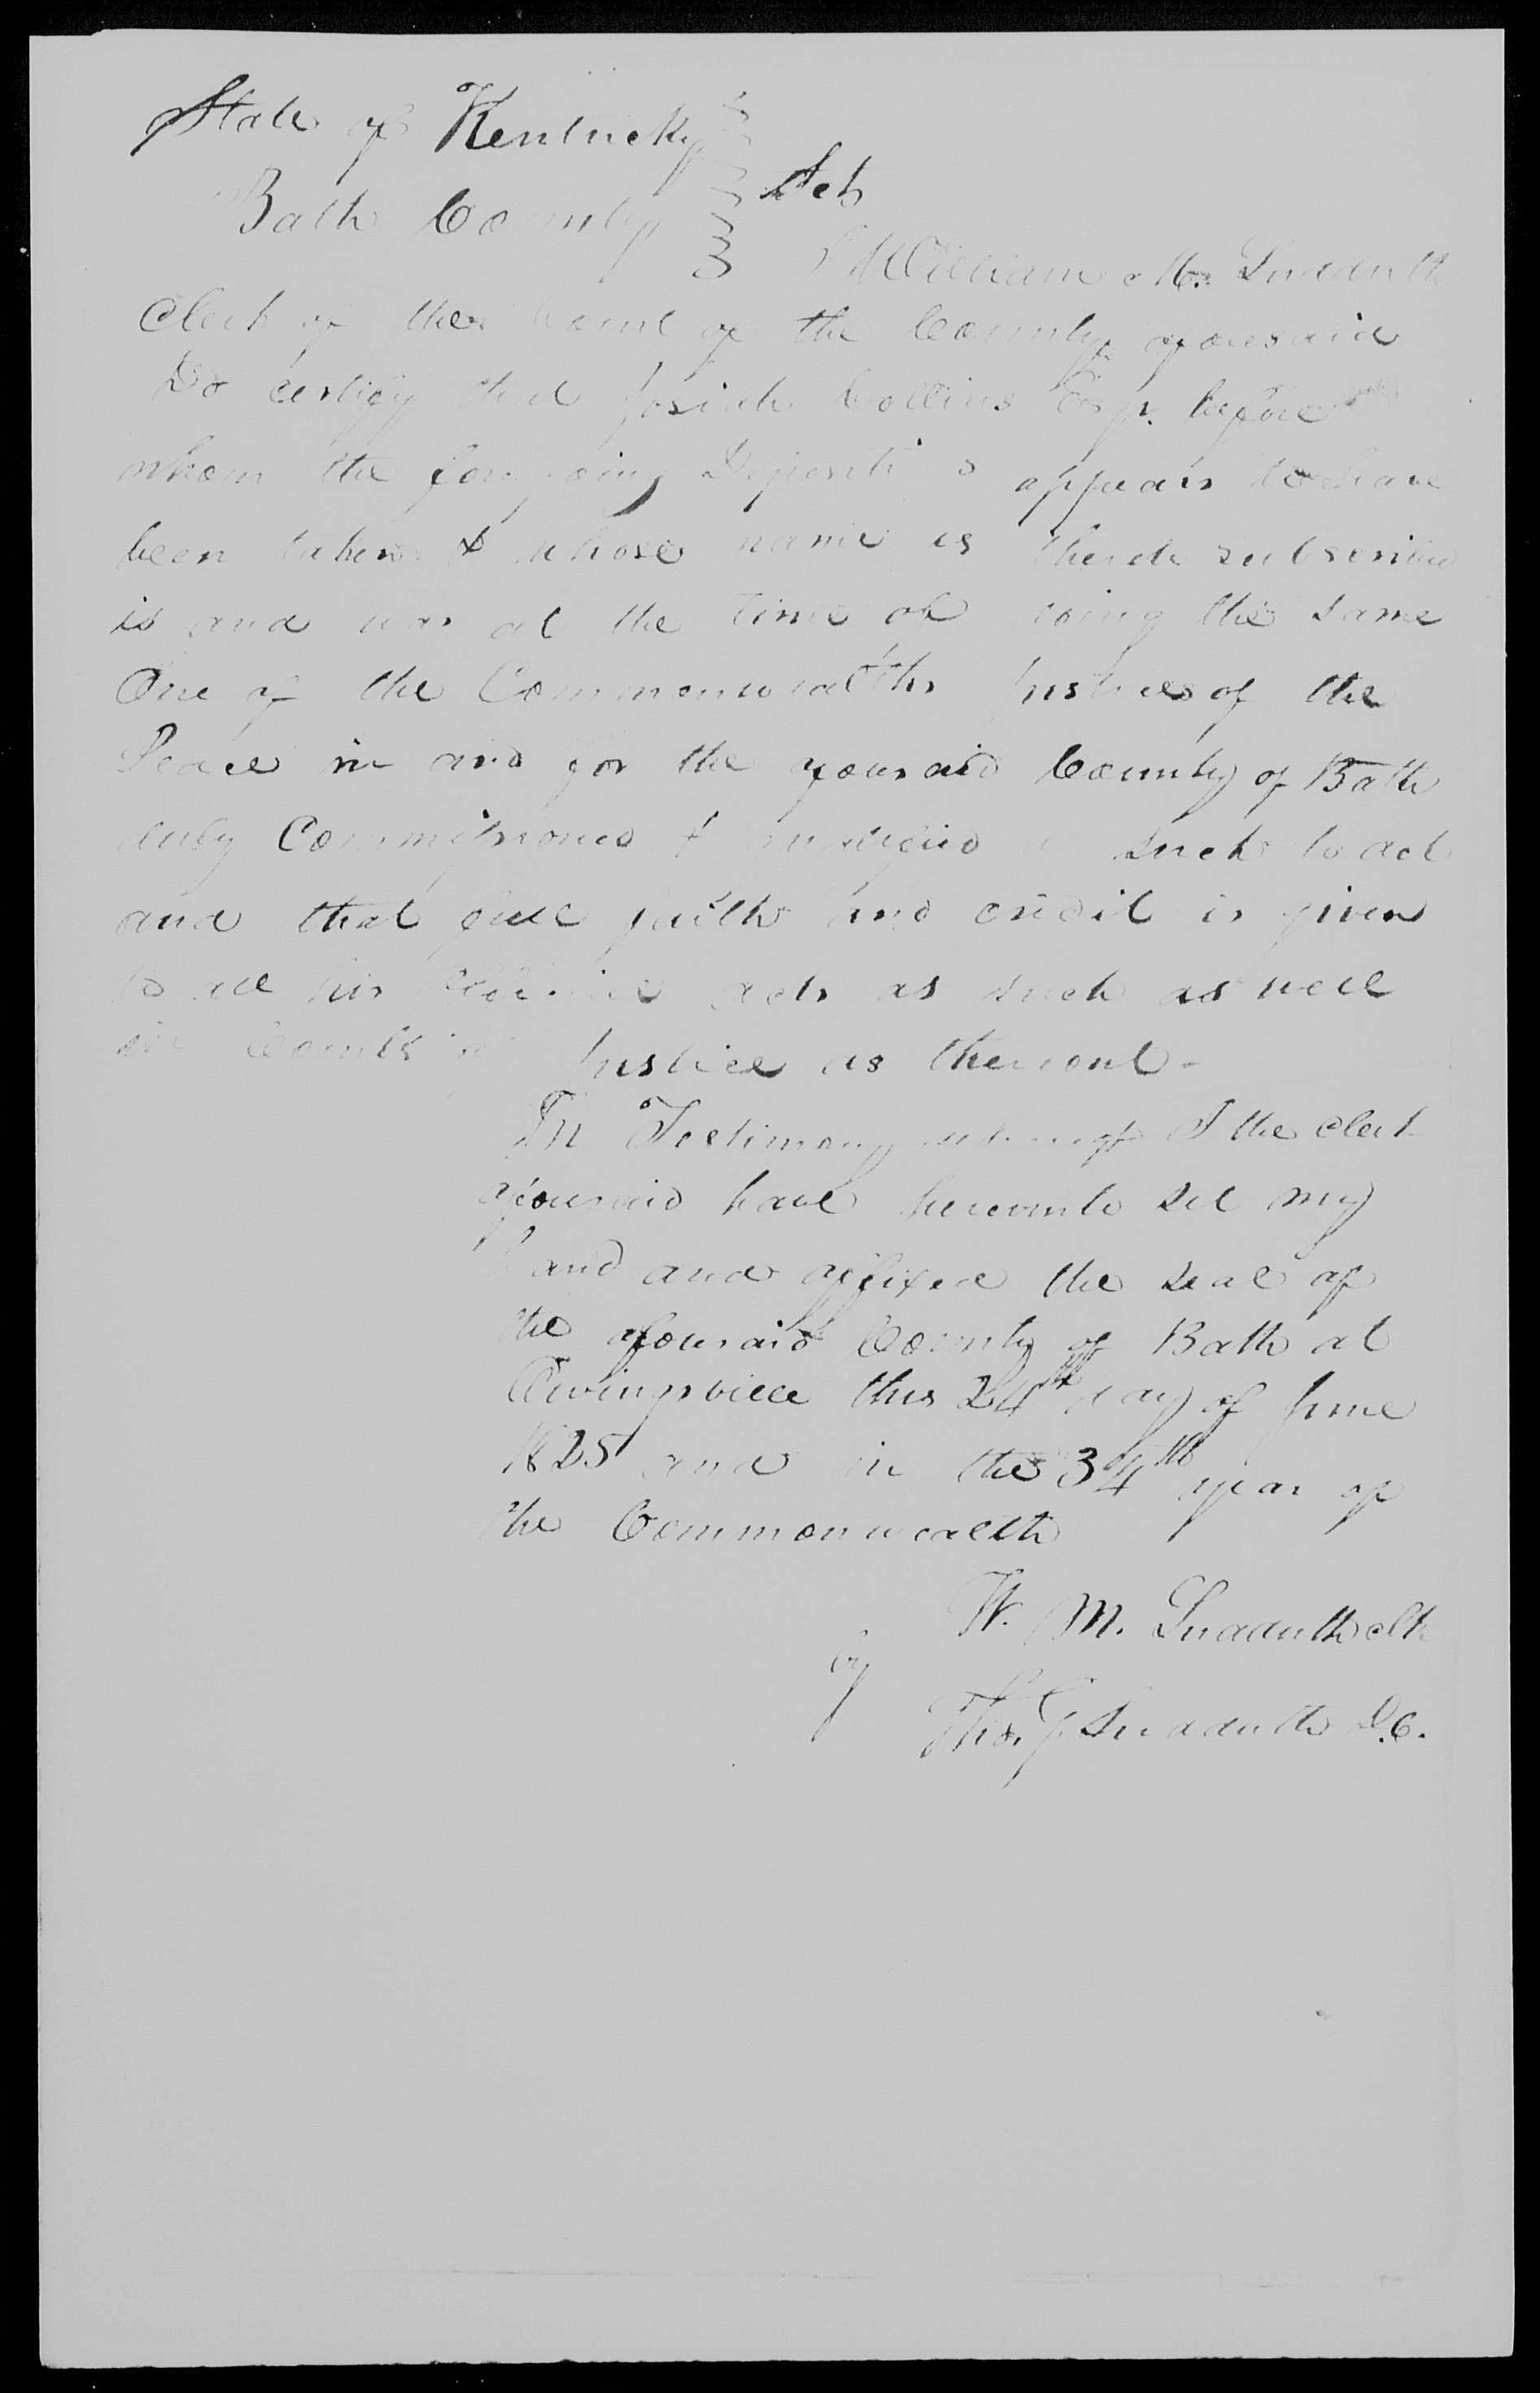 State of Kentucky
Bath County Sct
I William M. Sudduth
Clerk of the Court of the County aforesaid
Do certify that Josiah Collins Esqr. before
whom the foregoing appears to have
been taken & whose name is thereto subscribed
is and was at the time of doing the same
One of the Commonwealths Justices of the
Peace in and for the aforesaid County of Bath
duly Commissioned & qualified as such to act
and that full faith and credit is given
to all his acts as such as well
in Courts of Justice as thereout -
In Testimony whereof I the Clerk
aforesaid have hereunto set my
hand and affixed the seal of
the aforesaid County of Bath at
Owingsville this 24th day of June
1825 and in the 34th year of
the Commonwealth
W. M. Sudduth clk
by
Tho. J. Sudduth D.C.